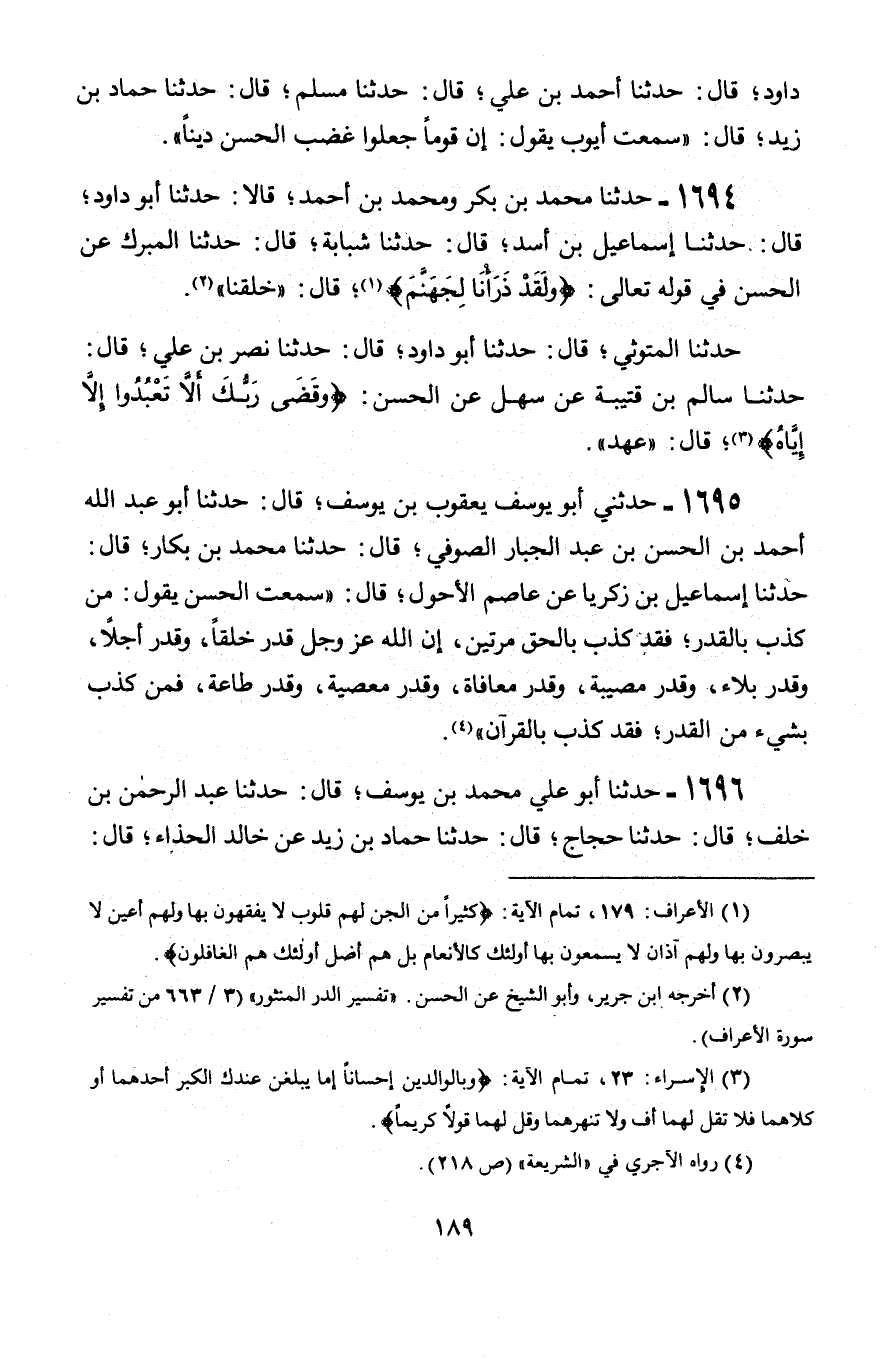 داود؛ قال: حدثنا أحمد بن علي؛ قال: حدثنا مسلم؛ قال: حدثنا حماد بن
زيد؛ قال: «سمعت أيوب يقول: إن قوماً جعلوا غضب الحسن ديناً».
١٦٩٤ ـ حدثنا محمد بن بكر ومحمد بن أحمد؛ قالا: حدثنا أبو داود؛
قال: حدثنا إسماعيل بن أسد؛ قال: حدثنا شبابة؛ قال: حدثنا المبرك عن
الحسن في قوله تعالى: ﴿ولَقَدْ ذَرَأْنَا لِجَهَنَّمَ﴾(١)؛ قال: «خلقنا»(٢).
حدثنا المتوثي؛ قال: حدثنا أبو داود؛ قال: حدثنا نصر بن علي؛ قال:
حدثنا سالم بن قتيبة عن سهل عن الحسن: ﴿وقَضَى رَبُّكَ أَلَّا تَعْبُدُوا إِلَّا
إِيَّاهُ﴾(٣)؛ قال: «عهد».
١٦٩٥ ـ حدثني أبو يوسف يعقوب بن يوسف؛ قال: حدثنا أبو عبد الله
أحمد بن الحسن بن عبد الجبار الصوفي؛ قال: حدثنا محمد بن بكار؛ قال:
حدثنا إسماعيل بن زكريا عن عاصم الأحول؛ قال: «سمعت الحسن يقول: من
كذب بالقدر؛ فقد كذب بالحق مرتين، إن الله عز وجل قدر خلقاً، وقدر أجلاً،
وقدر بلاء، وقدر مصيبة، وقدر معافاة، وقدر معصية، وقدر طاعة، فمن كذب
بشيء من القدر؛ فقد كذب بالقرآن»(٤).
١٦٩٦ ـ حدثنا أبو علي محمد بن يوسف؛ قال: حدثنا عبد الرحمٰن بن
خلف؛ قال: حدثنا حجاج؛ قال: حدثنا حماد بن زيد عن خالد الحذاء؛ قال:
(١) الأعراف: ١٧٩، تمام الآية: ﴿كثيراً من الجن لهم قلوب لا يفقهون بها ولهم أعين لا
يبصرون بها ولهم آذان لا يسمعون بها أولئك كالأنعام بل هم أضل أولٰئك هم الغافلون﴾.
(٢) أخرجه ابن جرير، وأبو الشيخ عن الحسن. «تفسير الدر المنثور» (٣ / ٦٦٣ من تفسير
سورة الأعراف).
(٣) الإسراء: ٢٣، تمام الآية: ﴿وبالوالدين إحساناً إما يبلغن عندك الكبر أحدهما أو
كلاهما فلا تقل لهما أف ولا تنهرهما وقل لهما قولاً كريماً﴾.
(٤) رواه الآجري في «الشريعة» (ص ٢١٨).
١٨٩